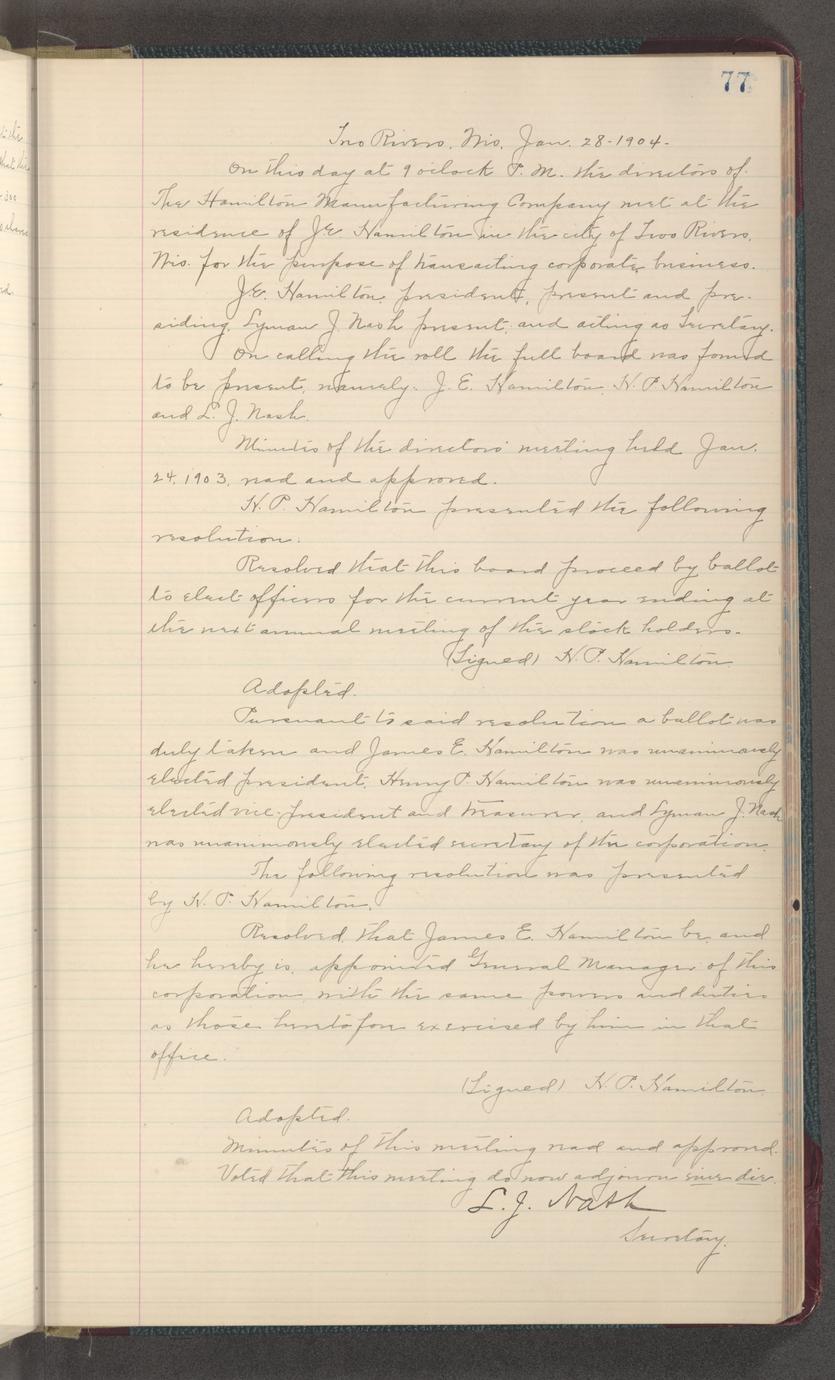 77
Two Rivers, Wis, Jan. 28-1904-
On this day at 9 oclock P. M. the directors of
The Hamilton Manufacturing Company met at the
residence of J.E. Hamilton in the city of Two Rivers,
Wis. for the purpose of transacting corporate business.
J.E. Hamilton, president, present and pre-
siding. Lyman J. Nash present, and acting as Secretary.
On calling the roll the full board was found
to be present, namely: J. E. Hamilton, H. P. Hamilton
and L. J. Nash.
Minutes of the directors' meeting held Jan.
24, 1903, read and approved.
H. P. Hamilton presented the following
resolution:
Resolved that this board proceed by ballot
to elect officers for the current year ending at
the next annual meeting of the stock holders.
(Signed) H. P. Hamilton
Adopted.
Pursuant to said resolution a ballot was
duly taken and James E. Hamilton was unanimously
elected president, Henry P. Hamilton was unanimously
elected vice-president and treasurer, and Lyman J. Nash
was unanimously elected secretary of the corporation.
The following resolution was presented
by H. P. Hamilton.
Resolved, that James E. Hamilton be, and
he hereby is, appointed General Manager of this
corporation, with the same powers and duties
as those heretofore exercised by him in that
office.
(Signed) H. P. Hamilton
Adopted.
Minutes of this meeting read and approved.
Voted that this meeting do now adjourn sine die.
L. J. Nash
Secretary.